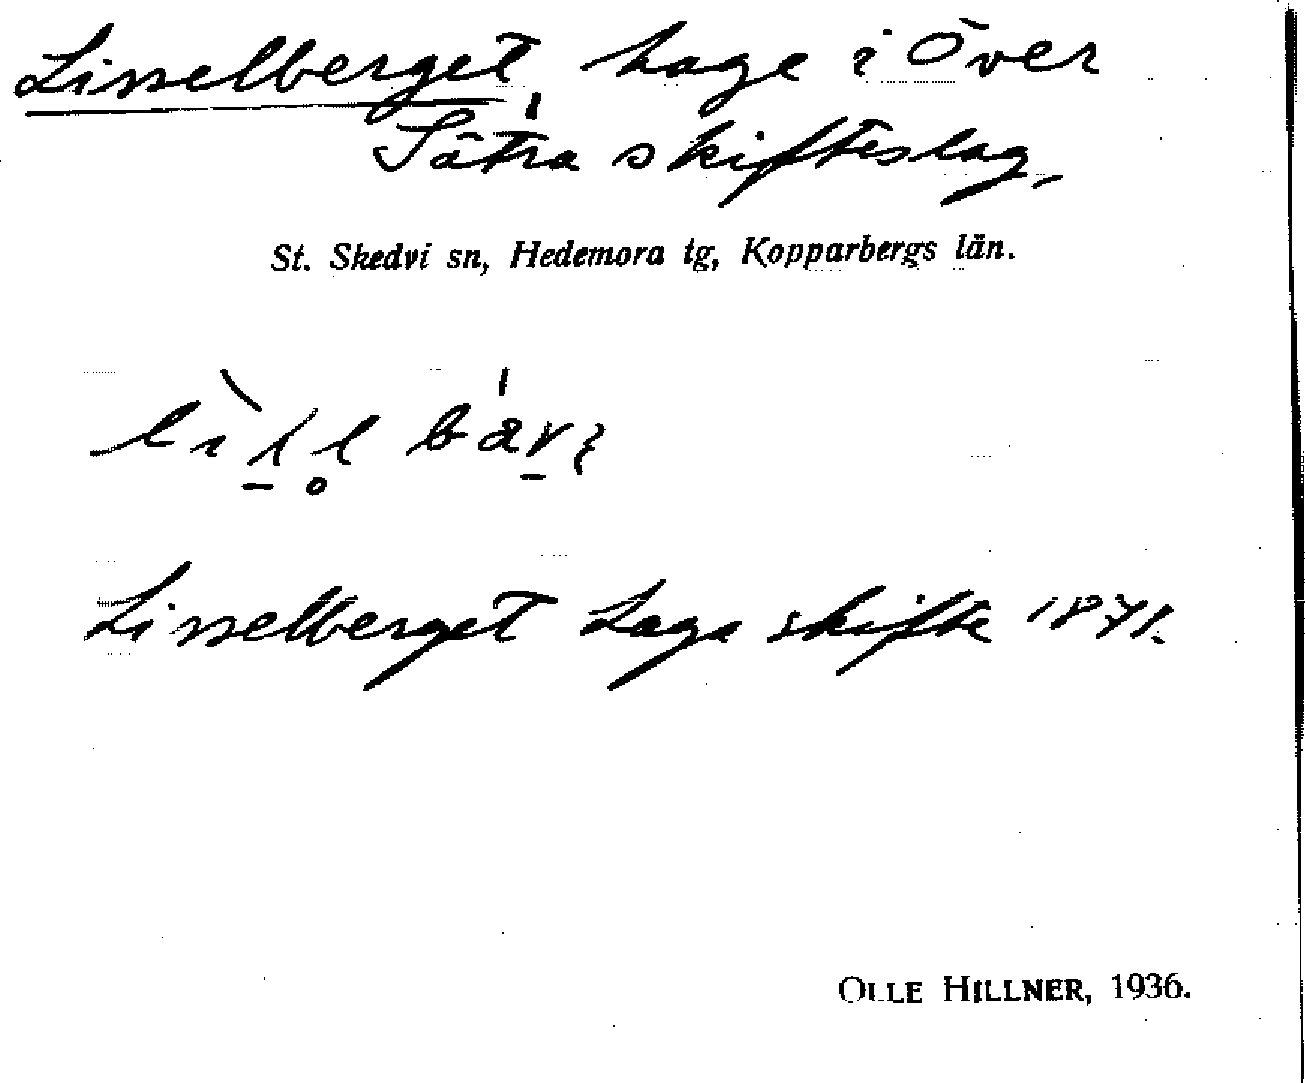 Lisselberget, hage i Över
Sätra skifteslag,
St. Skedvi sn, Hedemora tg, Kopparbergs län.
Lisselberget Laga skifte 1871.
OLLE HILLNER, 1936.